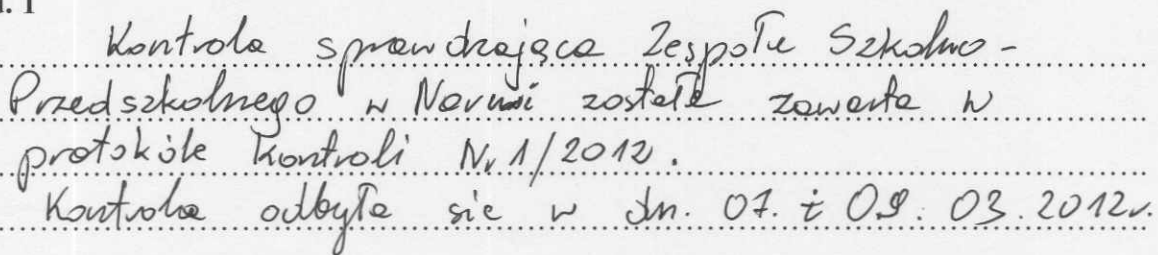 Kontrola sprawdzająca Zespołu Szkolno-
Przedszkolnego w została zawarta w
protokóle kontroli Nr 1/2012.
Kontrola odbyła sie w dn. 07. i 09. 03. 2012r.